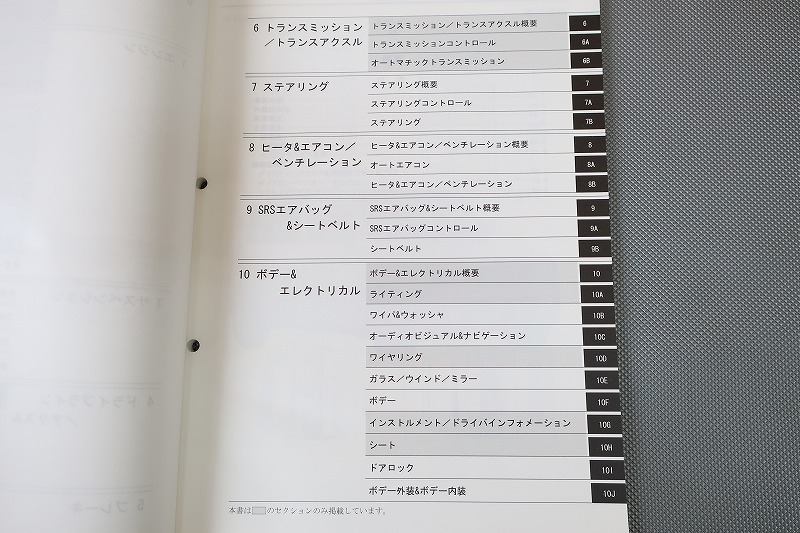 6 トランスミッション
／トランスアクスル
トランスミッション／トランスアクスル概要 6
トランスミッションコントロール 6A
オートマチックトランスミッション 6B
7 ステアリング
ステアリング概要 7
ステアリングコントロール 7A
ステアリング 7B
8 ヒータ&エアコン／
ベンチレーション
ヒータ&エアコン／ベンチレーション概要 8
オートエアコン 8A
ヒータ&エアコン／ベンチレーション 8B
9 SRSエアバッグ
&シートベルト
SRSエアバッグ&シートベルト概要 9
SRSエアバッグコントロール 9A
シートベルト 9B
10 ボデー&
エレクトリカル
ボデー&エレクトリカル概要 10
ライティング 10A
ワイパ&ウォッシャ 10B
オーディオビジュアル&ナビゲーション 10C
ワイヤリング 10D
ガラス／ウインド／ミラー 10E
ボデー 10F
インストルメント／ドライバインフォメーション 10G
シート 10H
ドアロック 10I
ボデー外装&ボデー内装 10J
本書は のセクションのみ掲載しています。